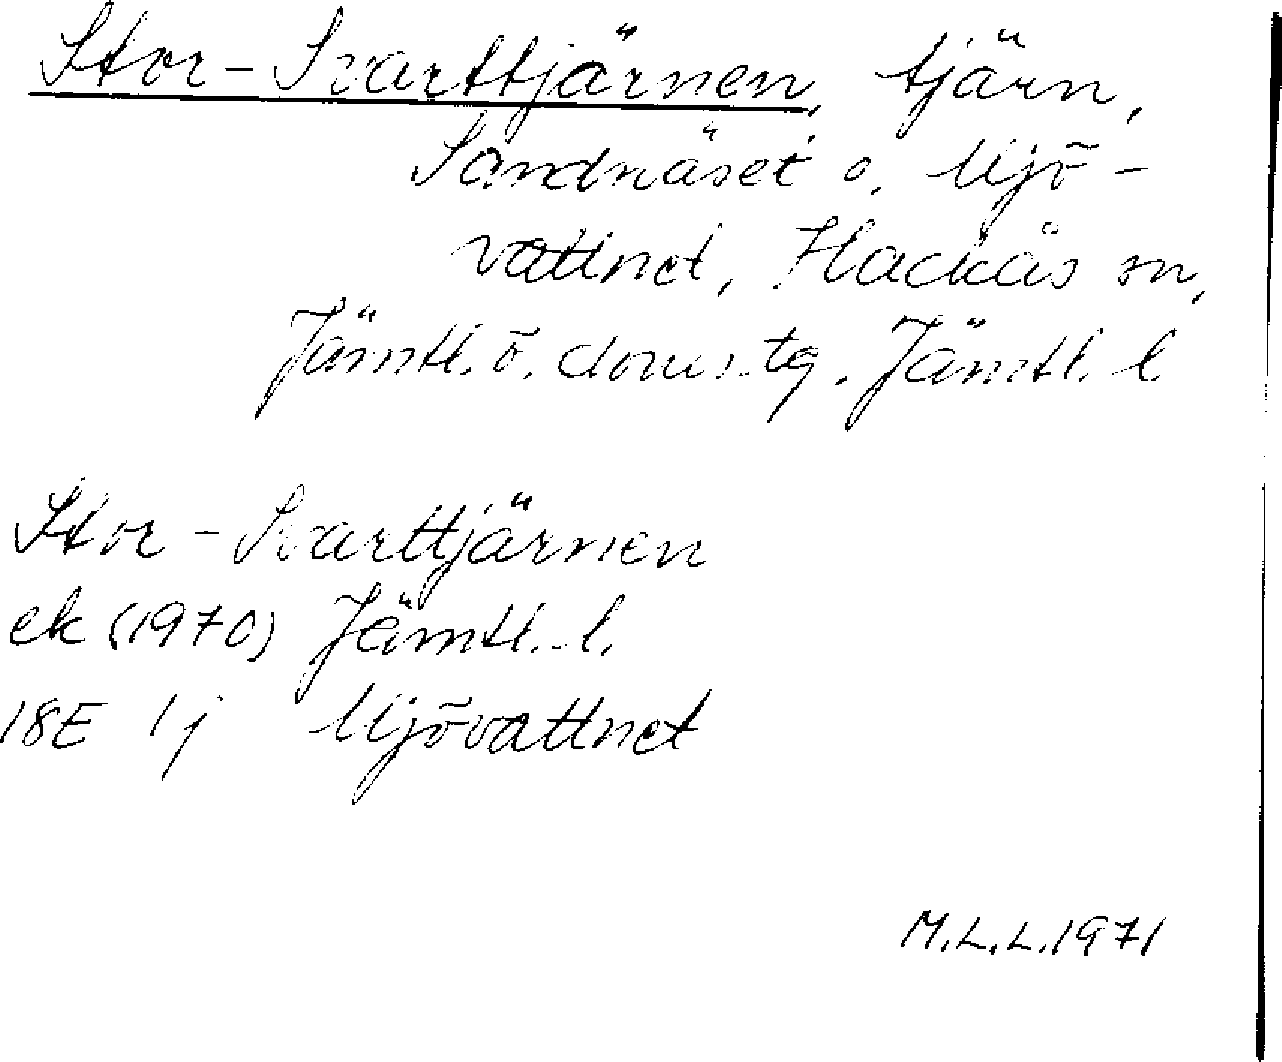 Stor-Svarttjärnen, tjärn,
Sandnäset o. Mjö-
vattnet, Hackås sn,
Jämtl. ö. doms.tg. Jämtl. l
Stor-Svarttjärnen
ek (1970) Jämtl. l.
18E 1j Mjövattnet
M.L.L. 1971